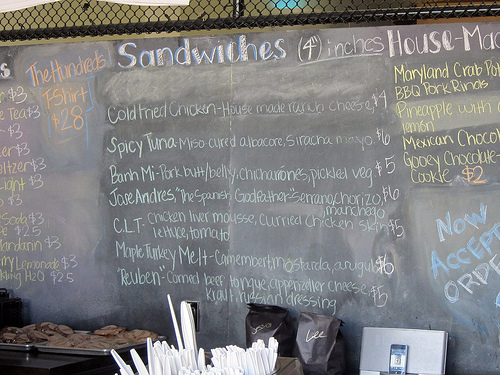 The Hundreds
T-Shirt
$28
$3
Tea $3
$3
$3
eltzer $3
$3
$3
Soda $3
$2.5
Mandarin $3
Lemonade $3
H2O $2.5
Sandwiches (4") inches
Cold Fried Chicken-House made ranch, cheese, $4
Spicy Tuna-Miso cured albacore, Siracha mayo. $6
Banh Mi-Pork butt/belly, chicharrones, pickled veg $5
Jose Andres, "The Spanish Godfather"-serrano, chorizo, $6
manchego
C.L.T. chicken liver mousse, curried chicken skin $5
lettuce, tomato
Maple Turkey Melt-Camembert, mostarda, arugula $6
"Reuben"-Corned beef tongue, appenzeller cheese $5
kraut, russian dressing
House-Mad
Maryland Crab Pot
BBQ Pork Rinds
Pineapple with
lemon
Mexican Chocol
Gooey Chocolate
Cookie $2
Now
Accept
Orde
Lee